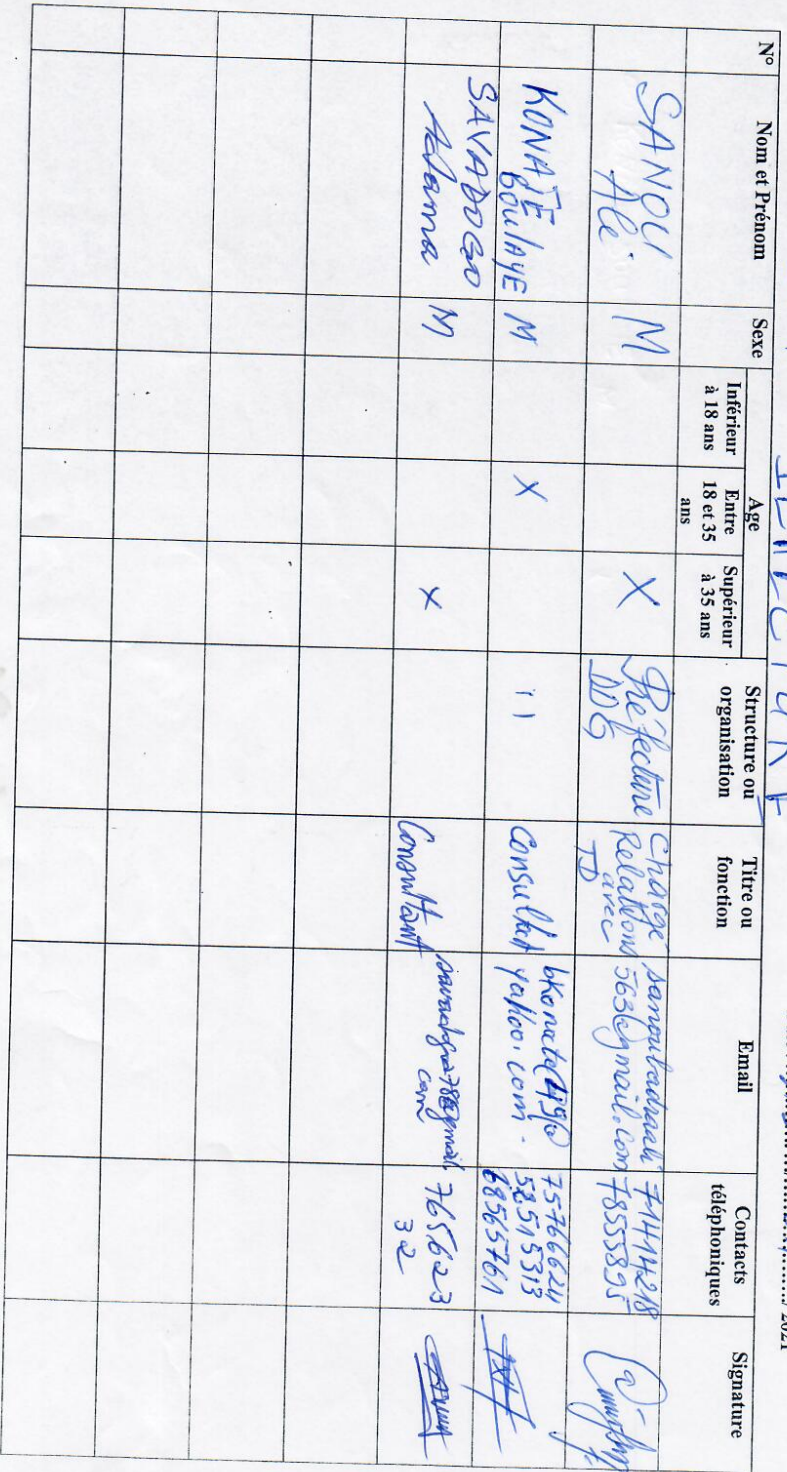 2021
N°
Nom et Prénom
Sexe
Age
Inférieur
à 18 ans
Entre
18 et 35
ans
Supérieur
à 35 ans
Structure ou
organisation
Titre ou
fonction
Email
Contacts
téléphoniques
Signature
SANOU
Ali
M
X
Préfecture
DDG
Chargé
Relations
avec
TD
sanoubadraali
563@gmail.com
71414218
78555895
KONATE
BOULAYE
M
X
11
Consultant
yahoo.com.
75766624
58515313
68565761
SAVADOGO
Adama
M
X
Consultant
com
765623
32